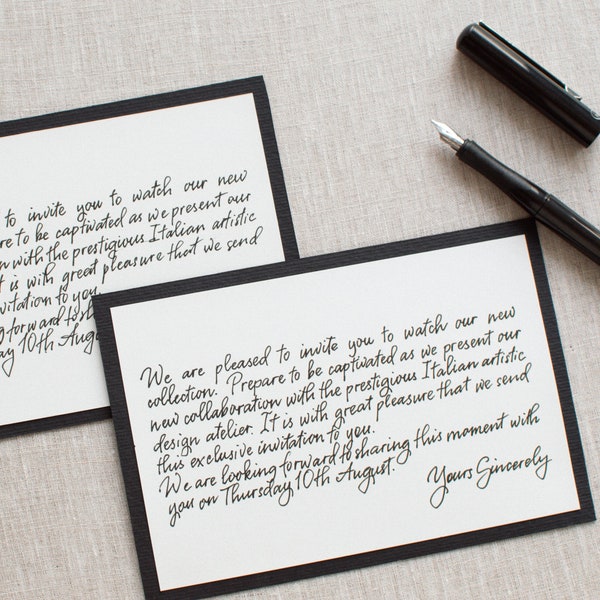 to invite you to watch our new
re to be captivated as we present our
n with the prestigious Italian artistic
t is with great pleasure that we send
nvitation to you.
ng forward to sh
ay 10th Aug
We are pleased to invite you to watch our new
collection. Prepare to be captivated as we present our
new collaboration with the prestigious Italian artistic
design atelier. It is with great pleasure that we send
this exclusive invitation to you.
We are looking forward to sharing this moment with
you on Thursday, 10th August.
Yours Sincerely